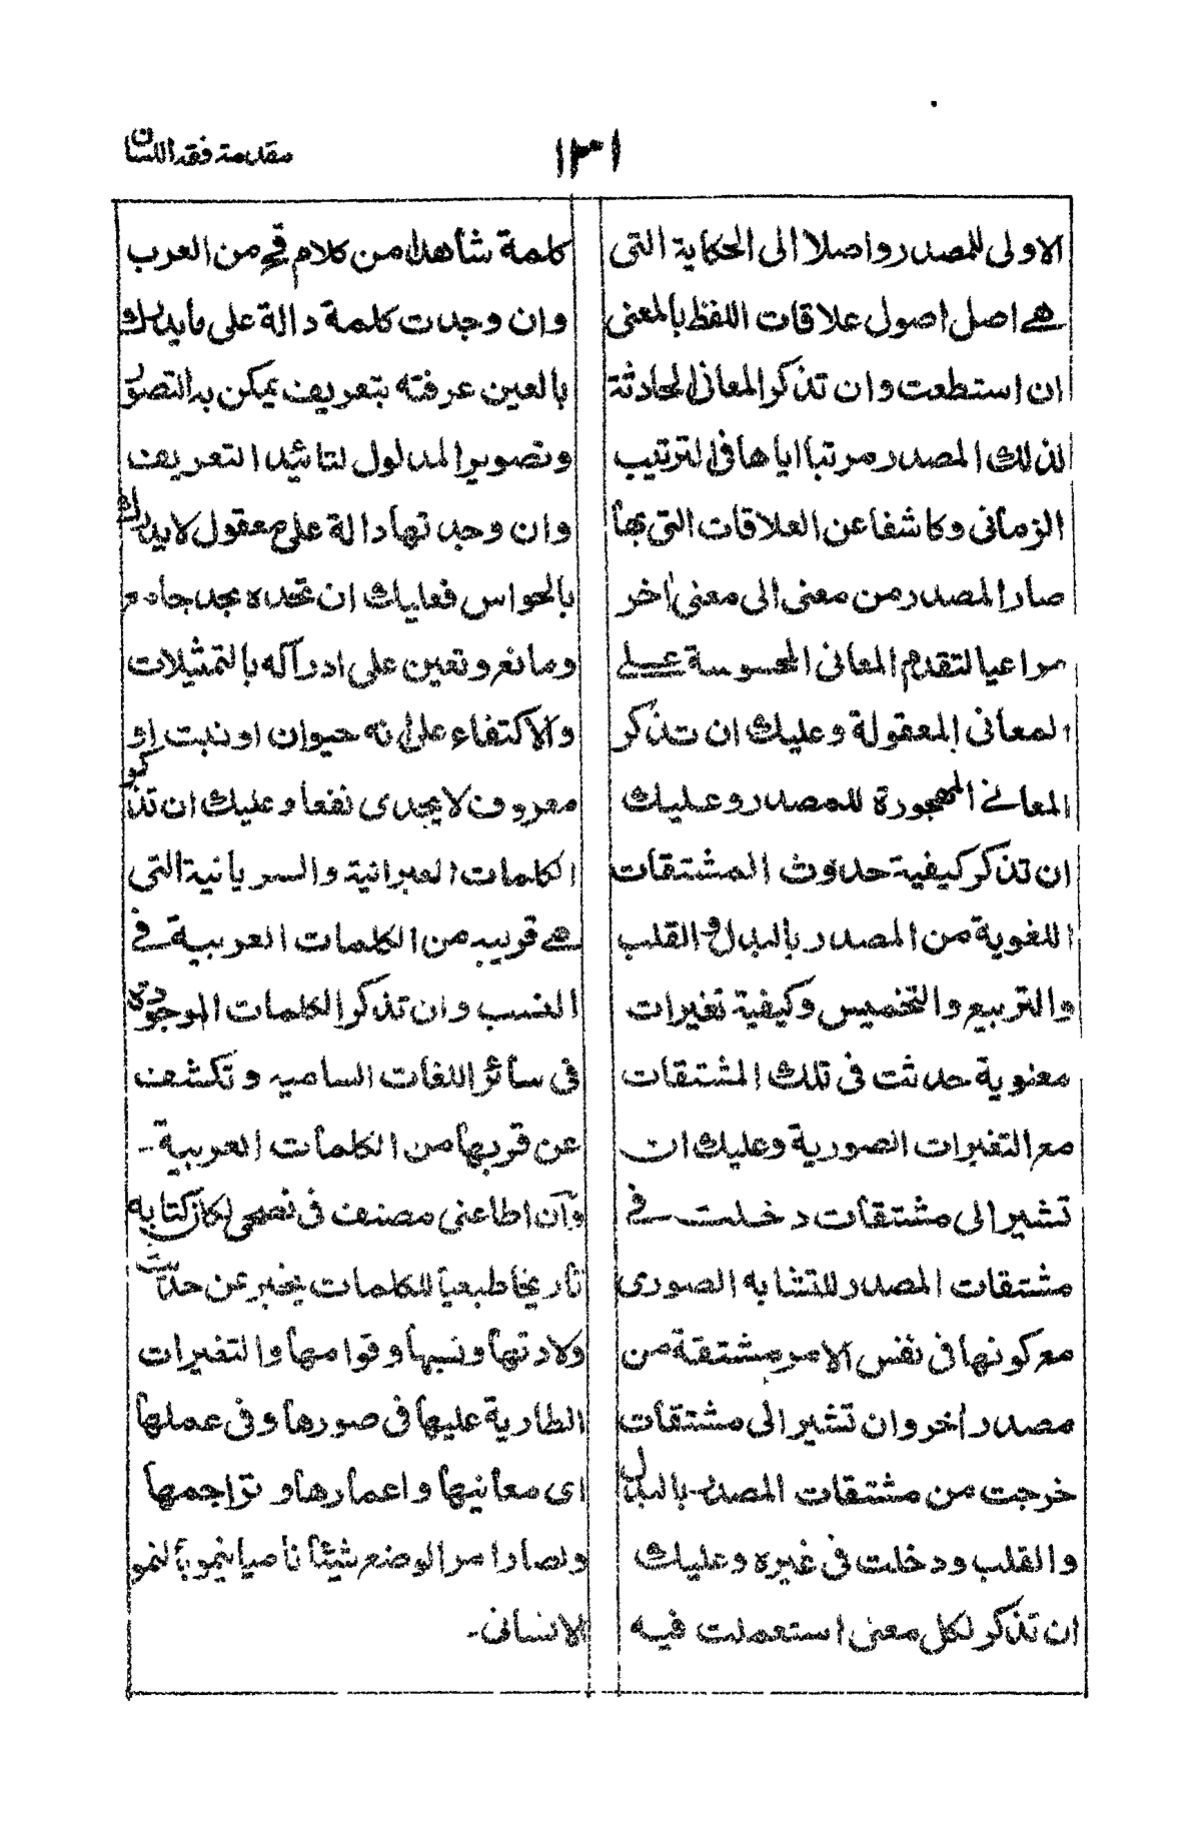 مقدمة فقه اللسان
١٣١
الاولى للمصدر واصلا الى الحكاية التى
هي اصل اصول علاقات اللفظ بالمعنى
ان استطعت وان تذكر المعانى الحادثة
لذلك المصدر مرتبا اياها فى الترتيب
الزمانى وكاشفا عن العلاقات التى بها
صار المصدر من معنى الى معنى اخر
مراعيا لتقدم المعانى المحسوسة على
المعانى المعقولة وعليك ان تذكر
المعاني المهجورة للمصدر وعليك
ان تذكر كيفية حدوث المشتقات
اللغوية من المصدر بالبدل والقلب
والتربيع والتخميس وكيفية تغيرات
معنوية حدثت فى تلك المشتقات
مع التغيرات الصورية وعليك ان
تشير الى مشتقات دخلت في
مشتقات المصدر للتشابه الصورى
مع كونها فى نفس الامر مشتقة من
مصدر اخر وان تشير الى مشتقات
خرجت من مشتقات المصدر بالبدل
والقلب ودخلت فى غيره وعليك
ان تذكر لكل معنى استعملت فيه
كلمة شاهدا من كلام قح من العرب
وان وجدت كلمة دالة على مايدرك
بالعين عرفته بتعريف يمكن به التصور
وتصوير المدلول لتائيد التعريف
وان وجدتها دالة على معقول لايدرك
بالحواس فعليك ان تحده بحد جامع
ومانع وتعين على ادراكه بالتمثيلات
والاكتفاء على انه حيوان او نبت او
معروف لا يجدى نفعا وعليك ان تذكر
الكلمات العبرانية والسريانية التى
هي قريبه من الكلمات العربية في
النسب وان تذكر الكلمات الموجودة
فى سائر اللغات الساميه وتكشف
عن قربها من الكلمات العربية-
وان اطاعنى مصنف فى نصحى لكان كتابه
تاريخا طبعيا للكلمات يخبر عن حديث
ولادتها ونسبها وقوامها والتغيرات
الطارية عليها فى صورها وفى عملها
اى معانيها واعمارها وتراجمها
ولصار امر الوضع شيئا ناميا ينمو بالنمو
الانسانى-